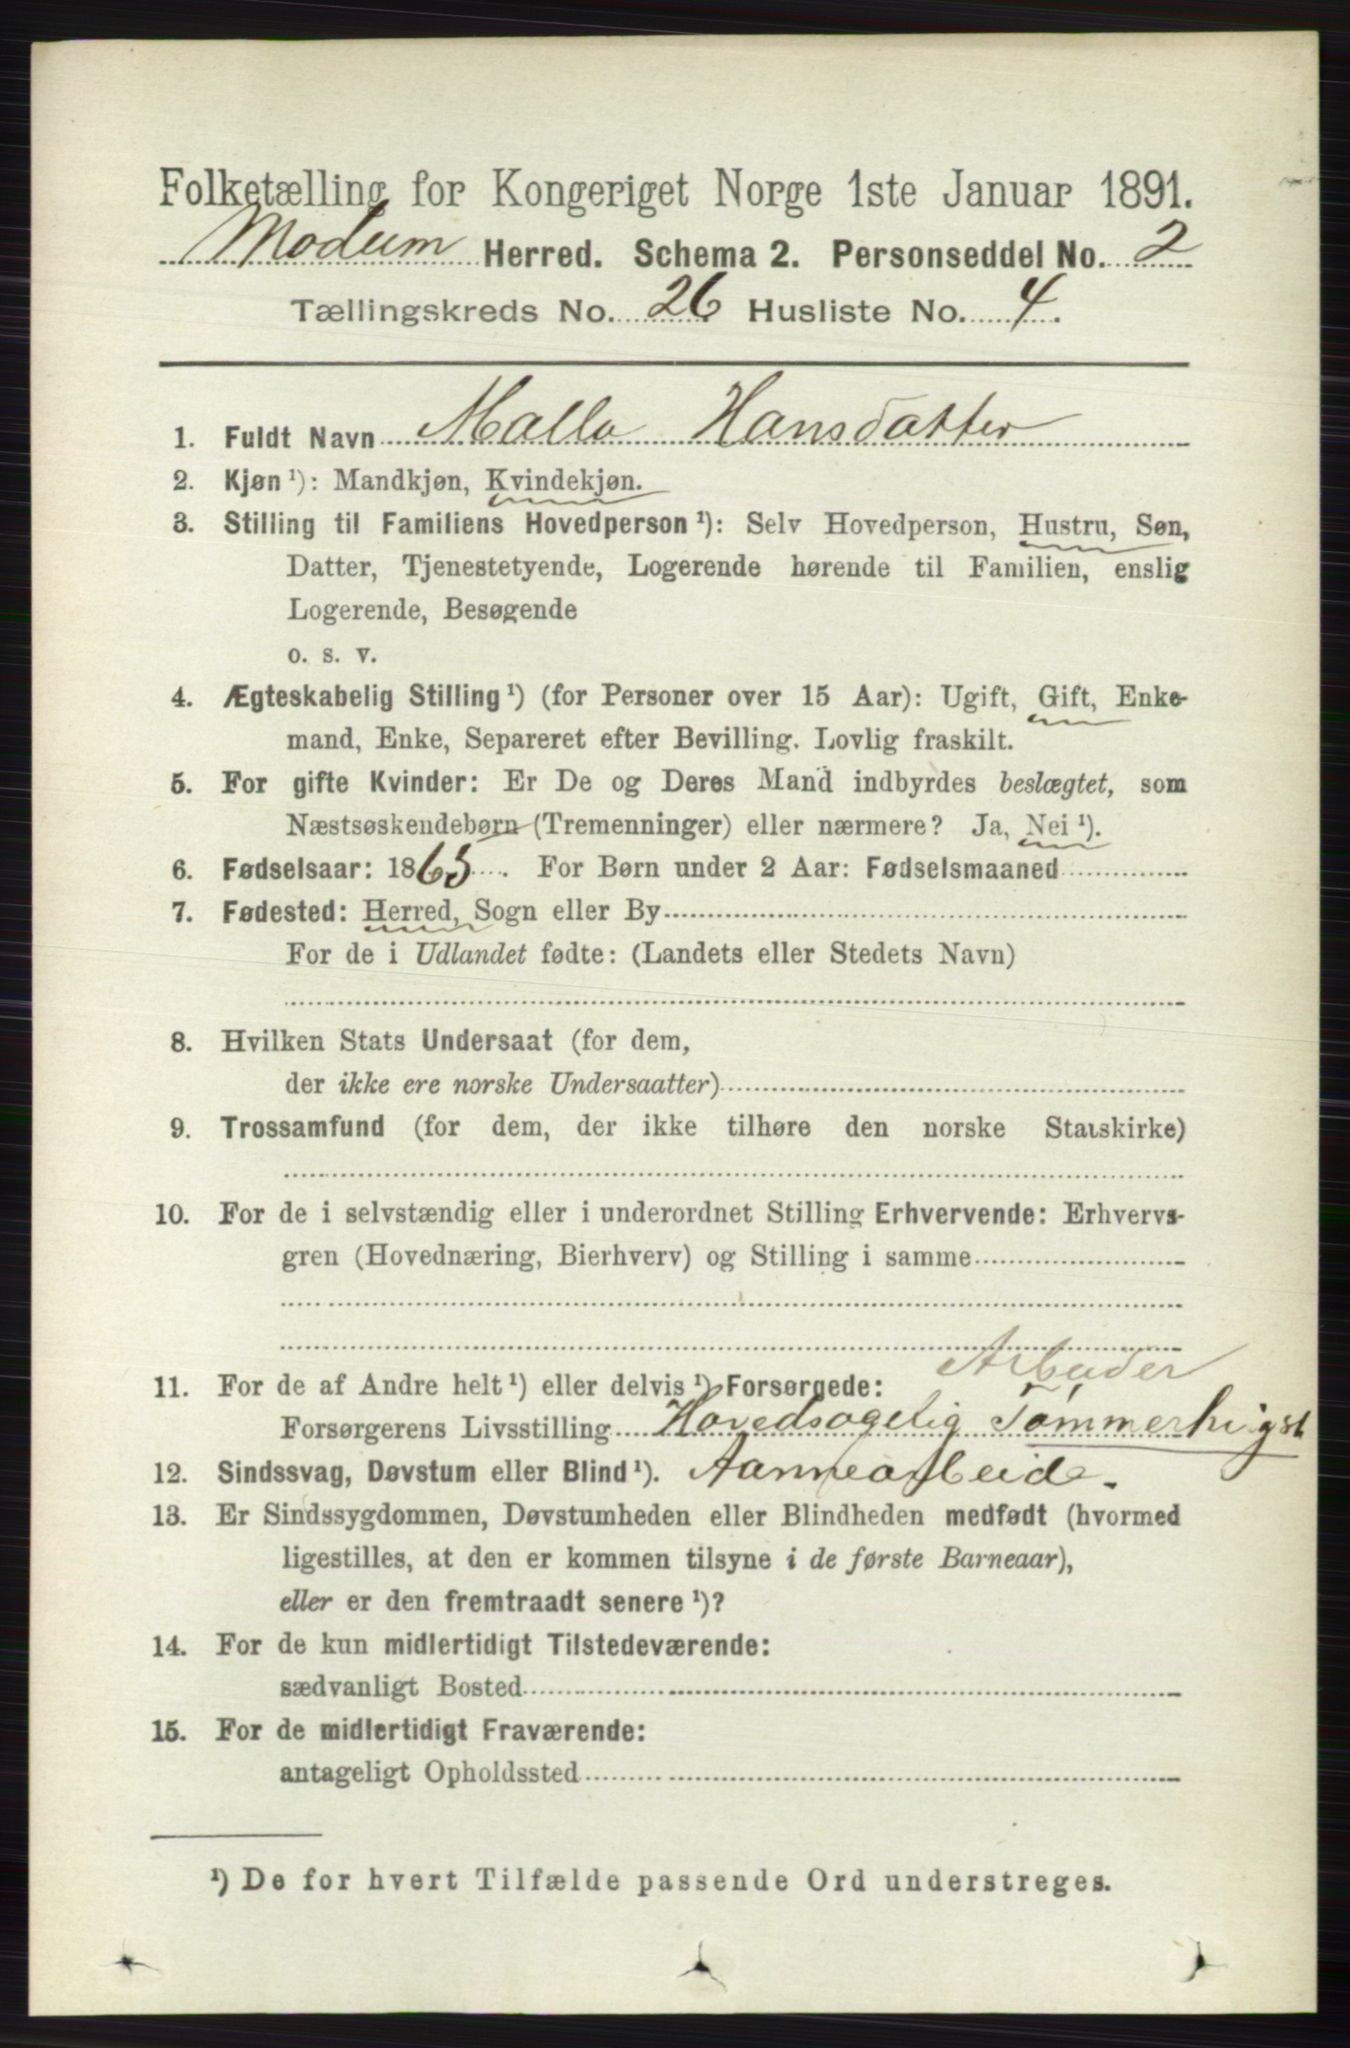 Folketælling for Kongeriget Norge 1ste Januar 1891.
Modum Herred. Schema 2. Personseddel No. 2
Tællingskreds No. 26 Husliste No. 4.
1. Fuldt Navn Malla Hansdatter
2. Kjøn ¹): Mandkjøn, Kvindekjøn.
3. Stilling til Familiens Hovedperson ¹): Selv Hovedperson, Hustru, Søn,
Datter, Tjenestetyende, Logerende hørende til Familien, enslig
Logerende, Besøgende
o. s. v.
4. Ægteskabelig Stilling ¹) (for Personer over 15 Aar): Ugift, Gift, Enke-
mand, Enke, Separeret efter Bevilling. Lovlig fraskilt.
5. For gifte Kvinder: Er De og Deres Mand indbyrdes beslægtet, som
Næstsøskendebørn (Tremenninger) eller nærmere? Ja, Nei ¹).
6. Fødselsaar: 1865. For Børn under 2 Aar: Fødselsmaaned
7. Fødested: Herred, Sogn eller By
For de i Udlandet fødte: (Landets eller Stedets Navn)
8. Hvilken Stats Undersaat (for dem,
der ikke ere norske Undersaatter)
9. Trossamfund (for dem, der ikke tilhøre den norske Statskirke)
10. For de i selvstændig eller i underordnet Stilling Erhvervende: Erhvervs-
gren (Hovednæring, Bierhverv) og Stilling i samme
Arbeider
11. For de af Andre helt ¹) eller delvis ¹) Forsørgede:
Forsørgerens Livsstilling Hovedsagelig Tømmerhugst
12. Sindssvag, Døvstum eller Blind ¹).
13. Er Sindssygdommen, Døvstumheden eller Blindheden medfødt (hvormed
ligestilles, at den er kommen tilsyne i de første Barneaar),
eller er den fremtraadt senere ¹)?
14. For de kun midlertidigt Tilstedeværende:
sædvanligt Bosted
15. For de midlertidigt Fraværende:
antageligt Opholdssted
¹) De for hvert Tilfælde passende Ord understreges.